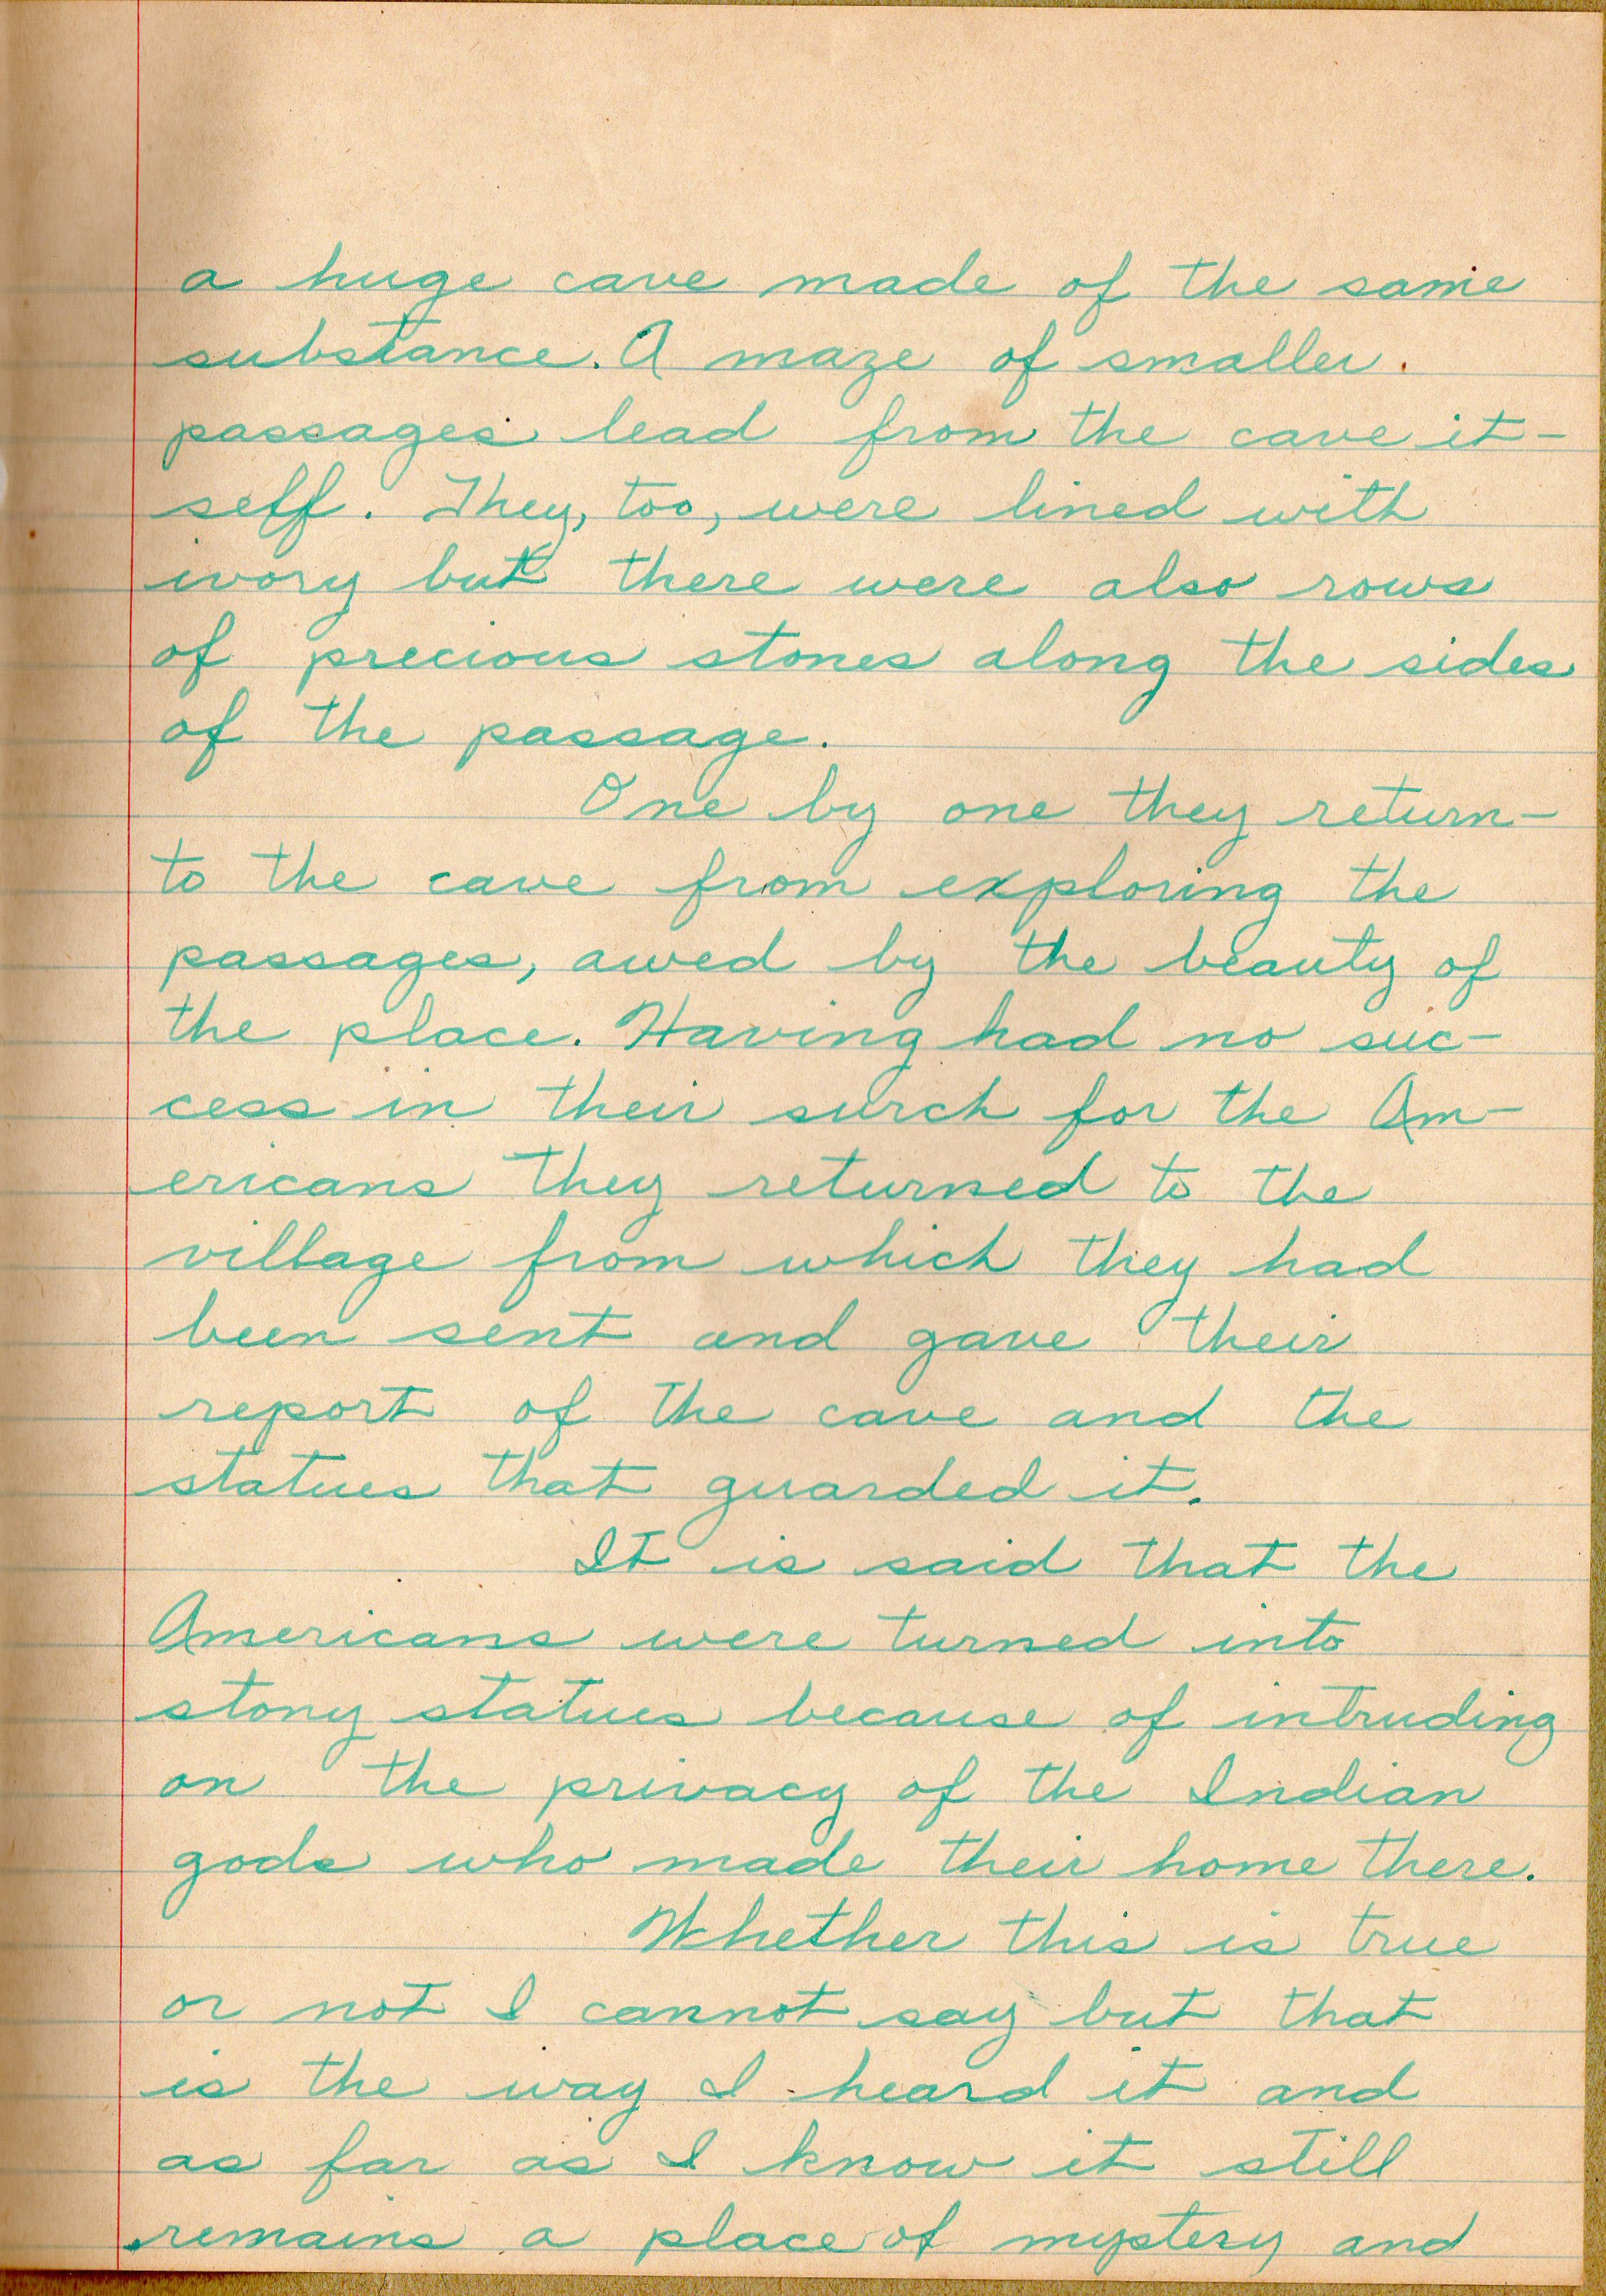 a huge cave made of the same
substance. A maze of smaller
passages lead from the cave it-
self. They, too, were lined with
ivory but there were also rows
of precious stones along the sides
of the passage.
One by one they return-
to the cave from exploring the
passages, awed by the beauty of
the place. Having had no suc-
cess in their surch for the Am-
ericans they returned to the
village from which they had
been sent and gave their
report of the cave and the
statues that guarded it.
It is said that the
Americans were turned into
stony statues because of intruding
on the privacy of the Indian
gods who made their home there.
Whether this is true
or not I cannot say but that
is the way I heard it and
as far as I know it still
remains a place of mystery and